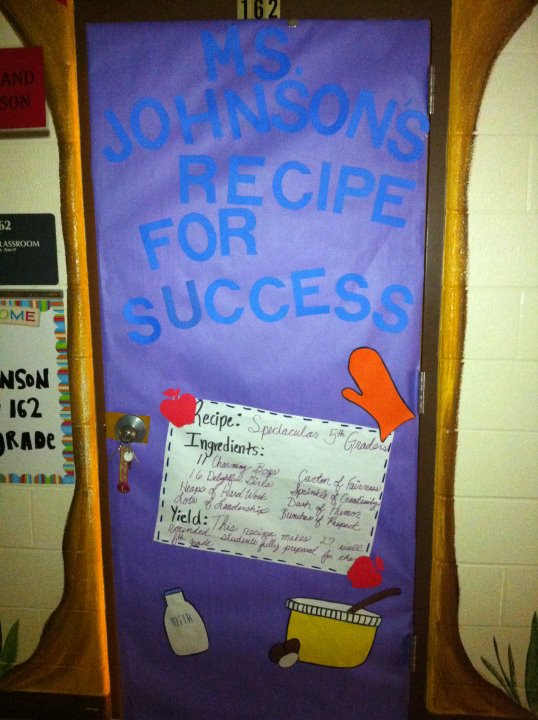 162
MS.
JOHNSON'S
RECIPE
FOR
SUCCESS
AND
SON
62
LASSROOM
OME
NSON
162
RADE
Recipe: Spectacular 5th Graders
Ingredients:
11 Charming Boys
16 Delightful Girls
Heaps of Hard Work
Lots of Leadership
Carton of Fairness
Sprinkle of Creativity
Dash of Humor
Bunches of Respect
Yield: This recipe makes 27 well
rounded students fully prepared for the
6th grade
milk